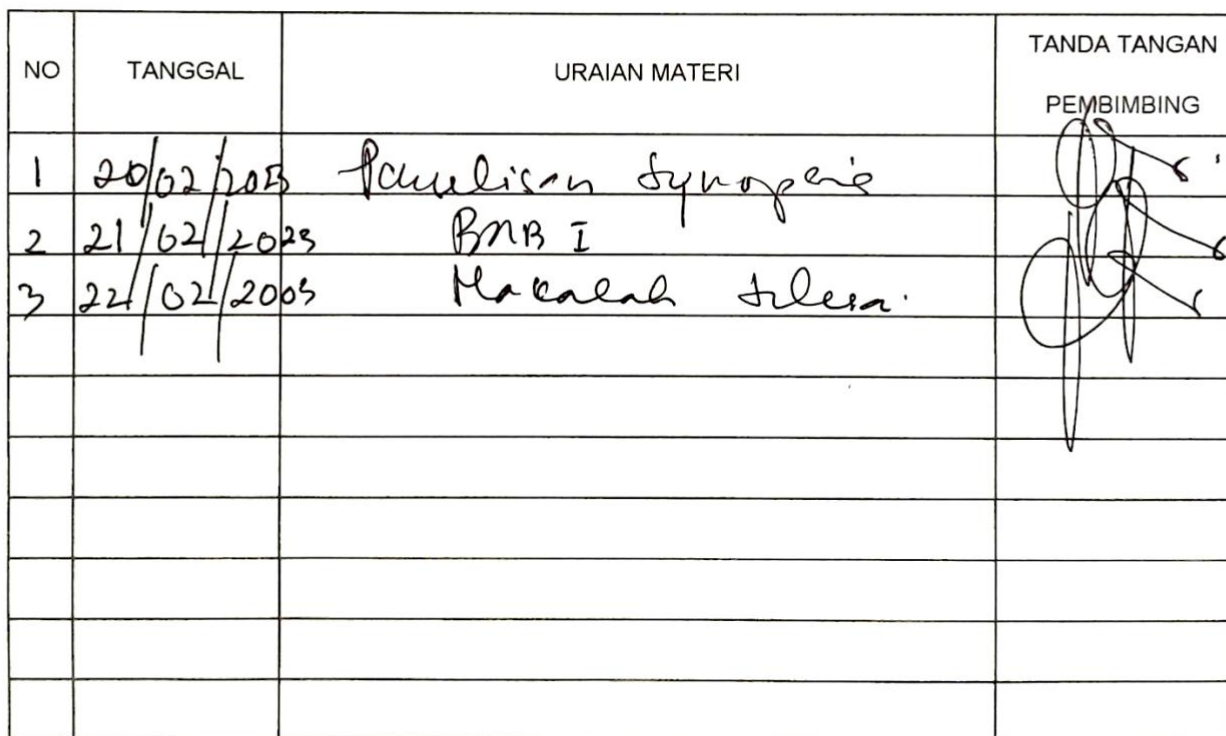 NO TANGGAL URAIAN MATERI TANDA TANGAN PEMBIMBING
1 20/02/2023 Penulisan Synopsis
2 21/02/2023 BAB I
3 22/02/2023 Makalah selesai.